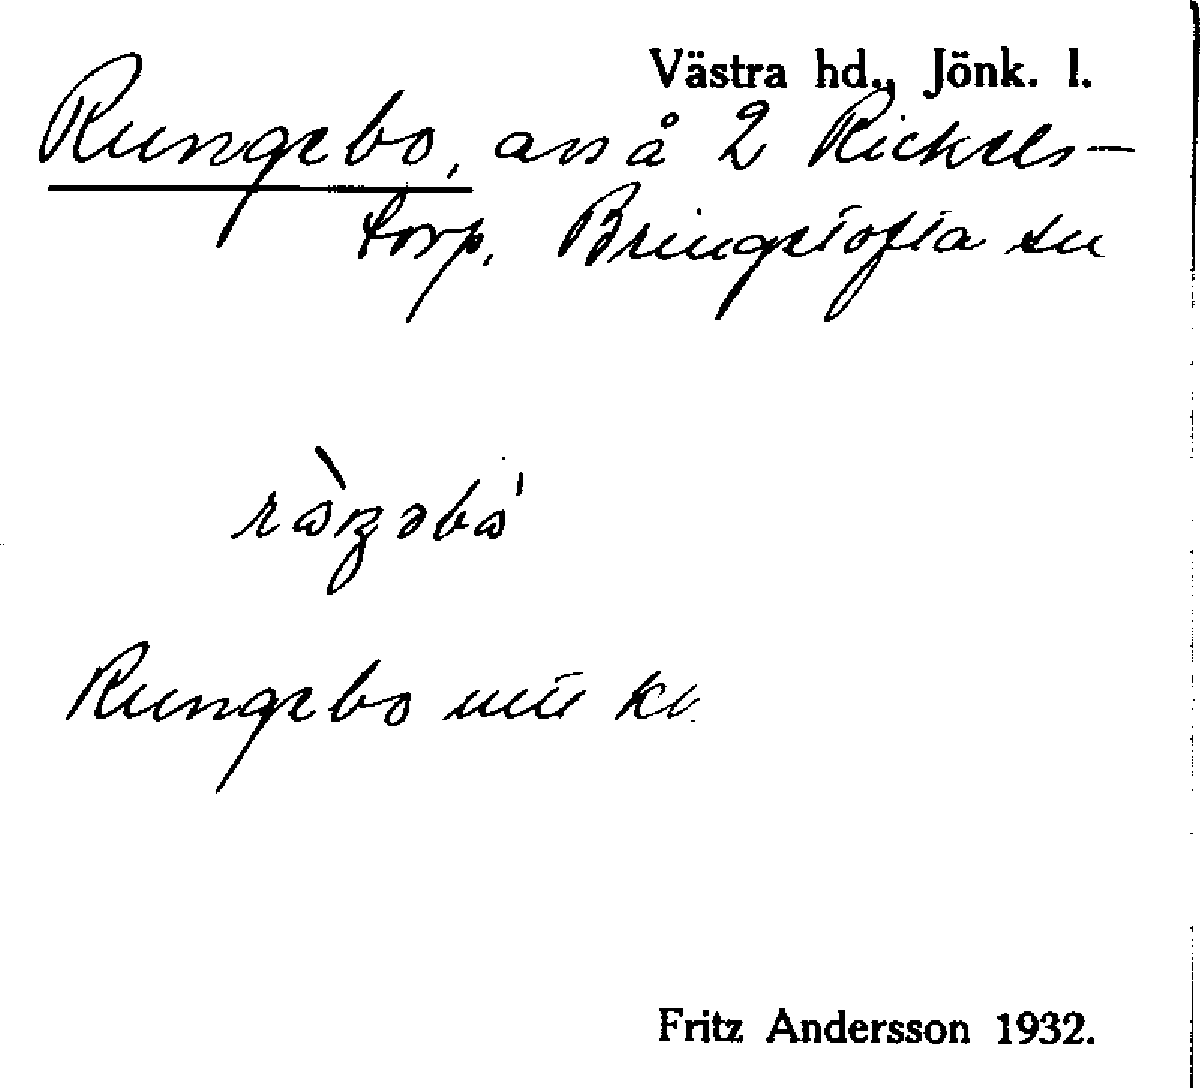 Västra hd., Jönk. l.
Rungebo, avs å 2 Rickels-
torp, Bringetofta sn
Rungebo
Fritz Andersson 1932.